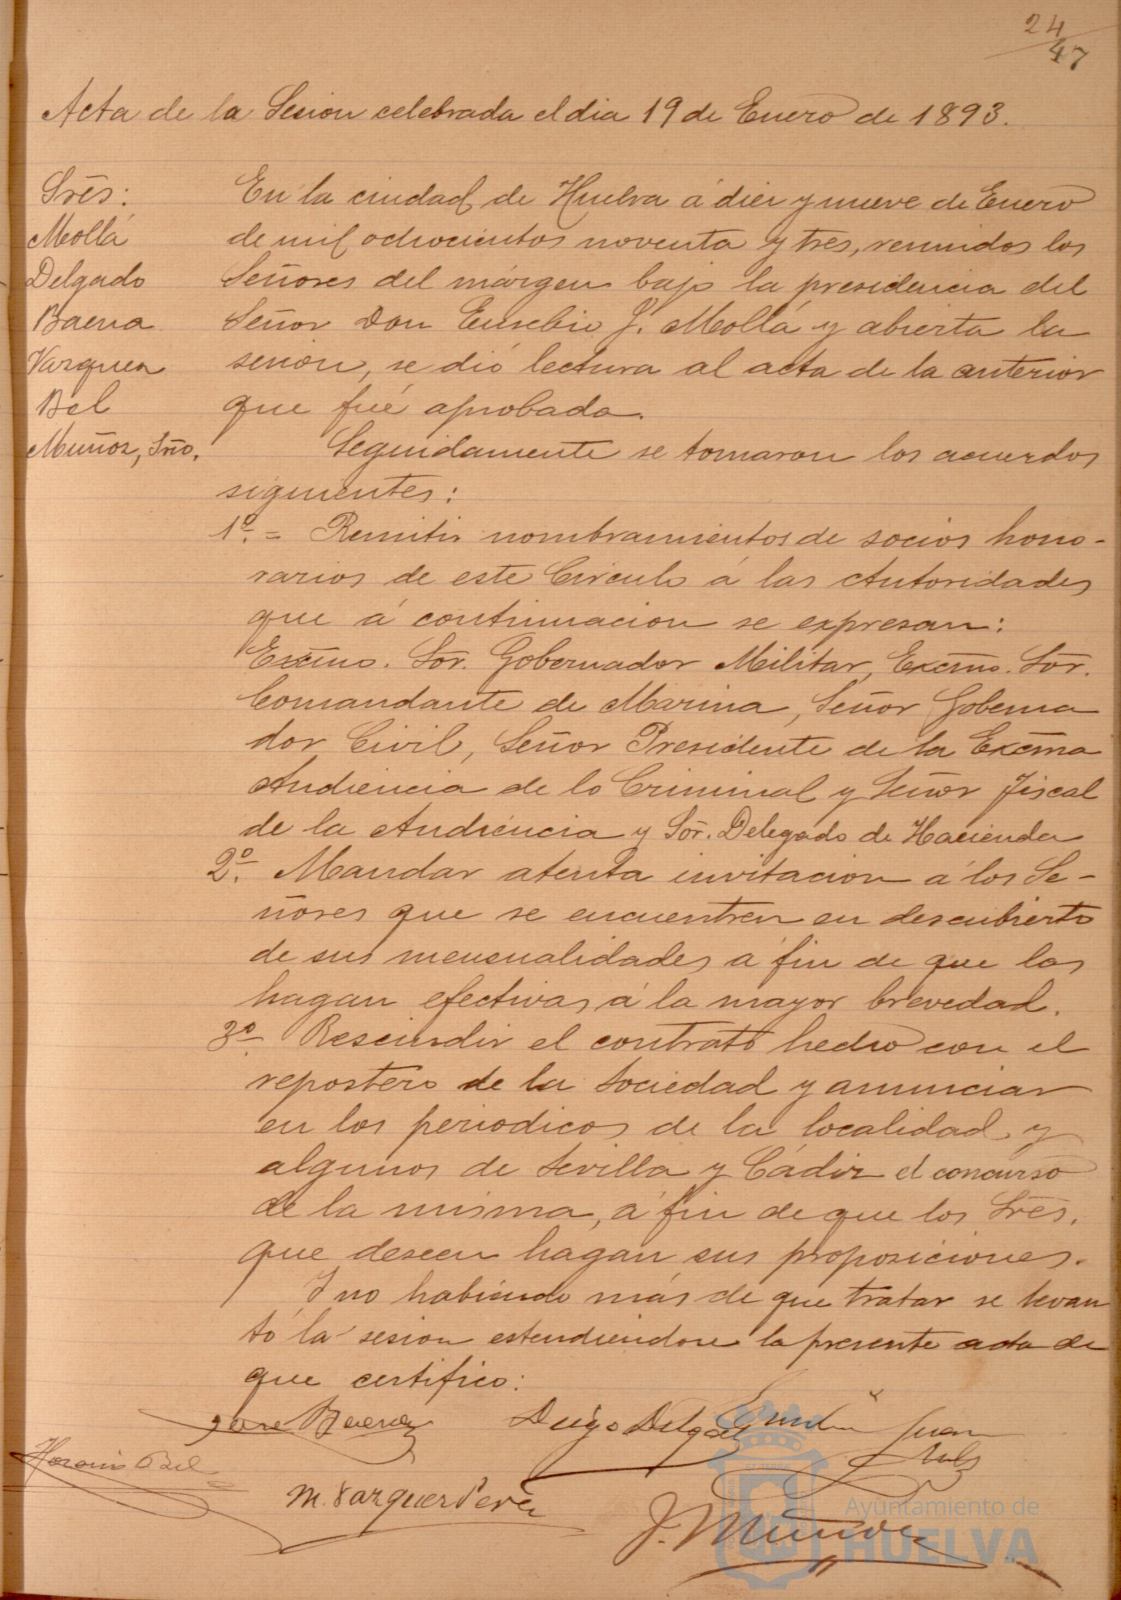 24
47
Acta de la Sesion celebrada el dia 19 de Enero de 1893.
Srēs:
Mollá
Delgado
Baena
Vazquez
Bel
Muñoz, Srio.
En la ciudad de Huelva á diez y nueve de Enero
de mil ochocientos noventa y tres, reunidos los
Señores del márgen bajo la presidencia del
Señor Don Eusebio J. Mollá y abierta la
sesion, se dió lectura al acta de la anterior
que fué aprobada.
Seguidamente se tomaron los acuerdos
siguientes:
1º. = Remitir nombramientos de socios hono-
rarios de este Circulo á las Autoridades
que á continuacion se expresan:
Excmo. Sōr. Gobernador Militar, Excmo. Sōr.
Comandante de Marina, Señor Goberna
dor Civil, Señor Presidente de la Excma
Audiencia de lo Criminal y Señor Fiscal
de la Audiencia y Sōr. Delegado de Hacienda
2º. Mandar atenta invitacion á los Se-
ñores que se encuentren en descubierto
de sus mensualidades á fin de que las
hagan efectivas á la mayor brevedad.
3º. Rescindir el contrato hecho con el
repostero de la Sociedad y anunciar
en los periodicos de la localidad y
algunos de Sevilla y Cádiz el concurso
de la misma, á fin de que los Srēs.
que deseen hagan sus proposiciones.
Y no habiendo más de que tratar se levan
tó la sesion estendiendose la presente acta de
que certifico:
José Baena
Diego Delgado
Horacio Bel
M. Vazquez Perez
J. Muñoz
Ayuntamiento de
HUELVA